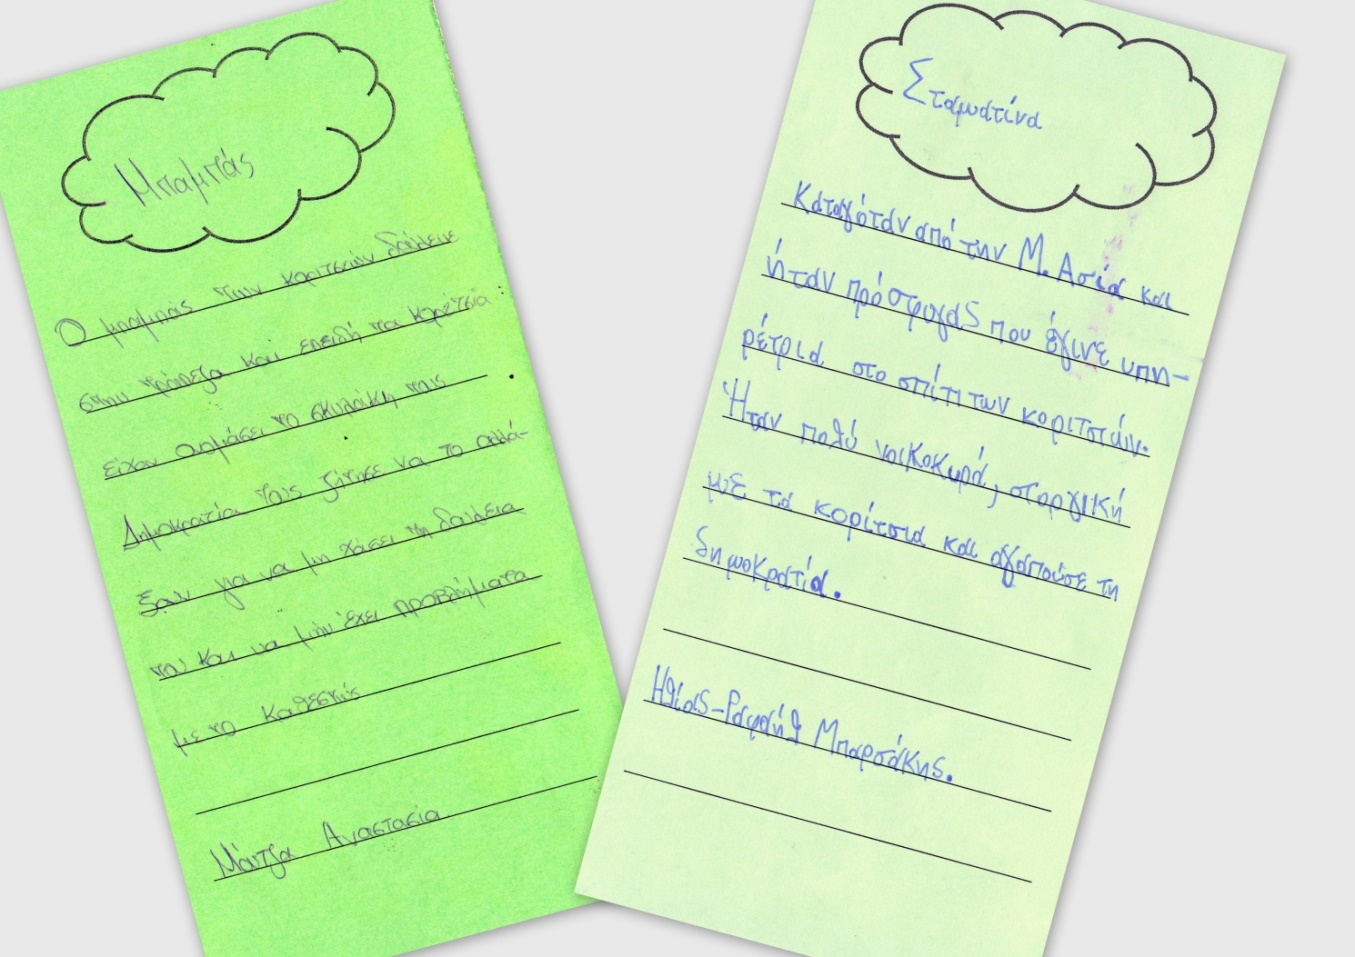 Μπαμπάς
Ο μπαμπάς των κοριτσιών δούλευε
στην τράπεζα και επειδή τα κορίτσια
είχαν ονομάσει το σκυλάκι τους
Δημοκρατία τους ζήτησε να το αλλά-
ξουν για να μη χάσει τη δουλεια
του και να μην έχει προβλήματα
με το καθεστώς
Μάντζα Αναστασία
Σταματίνα
Καταγόταν από την Μ. Ασία και
ήταν πρόσφιγας που έγινε υπη-
ρέτρια στο σπίτι των κοριτσιών.
Ήταν πολύ νοικοκυρά, στοργική
με τα κορίτσια και αγαπούσε τη
δημοκρατία.
Ηλίας-Ραφαήλ Μπαρσάκης.